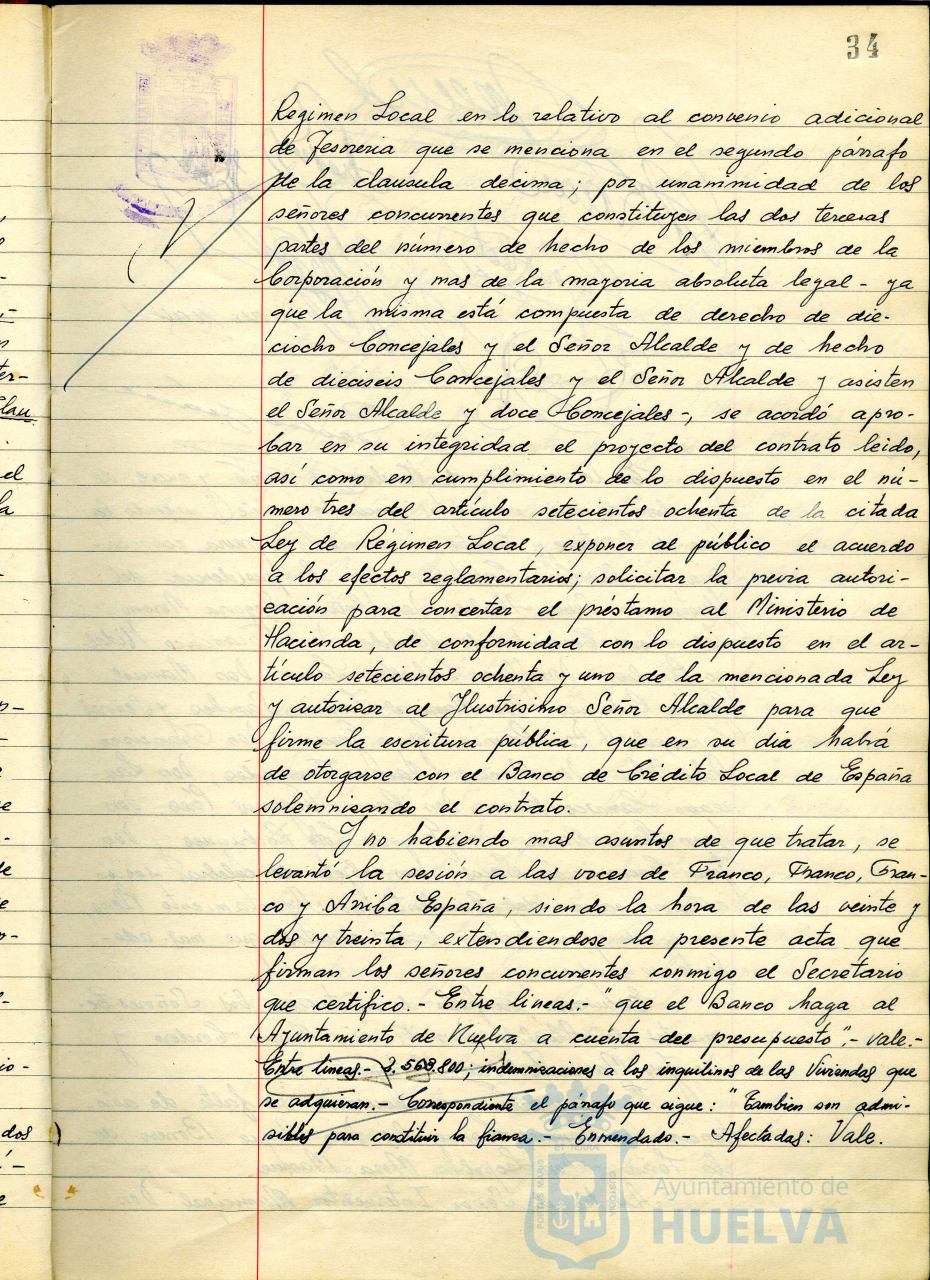 34
Regimen Local en lo relativo al convenio adicional
de Tesoreria que se menciona en el segundo párrafo
de la clausula decima; por unanimidad de los
señores concurrentes que constituyen las dos terceras
partes del número de hecho de los miembros de la
Corporación y mas de la mayoria absoluta legal - ya
que la misma está compuesta de derecho de die-
ciocho Concejales y el Señor Alcalde y de hecho
de dieciseis Concejales y el Señor Alcalde y asisten
el Señor Alcalde y doce Concejales -, se acordó apro-
bar en su integridad el proyecto del contrato leido,
así como en cumplimiento de lo dispuesto en el nú-
mero tres del artículo setecientos ochenta de la citada
Ley de Régimen Local, exponer al público el acuerdo
a los efectos reglamentarios; solicitar la previa autori-
zación para concertar el préstamo al Ministerio de
Hacienda, de conformidad con lo dispuesto en el ar-
tículo setecientos ochenta y uno de la mencionada Ley
y autorizar al Ilustrisimo Señor Alcalde para que
firme la escritura pública, que en su dia habrá
de otorgarse con el Banco de Crédito Local de España
solemnizando el contrato.
Y no habiendo mas asuntos de que tratar, se
levantó la sesión a las voces de Franco, Franco, Fran-
co y Arriba España, siendo la hora de las veinte y
dos y treinta, extendiendose la presente acta que
firman los señores concurrentes conmigo el Secretario
que certifico.- Entre lineas.- "que el Banco haga al
Ayuntamiento de Huelva a cuenta del presupuesto".- vale.-
Entre lineas.- 3.563.800; indemnizaciones a los inquilinos de las Viviendas que
se adquieran.- Correspondiente el párrafo que sigue: "Tambien son admi-
sibles para constituir la fianza.- Enmendado.- Afectadas: Vale.
Ayuntamiento de
HUELVA